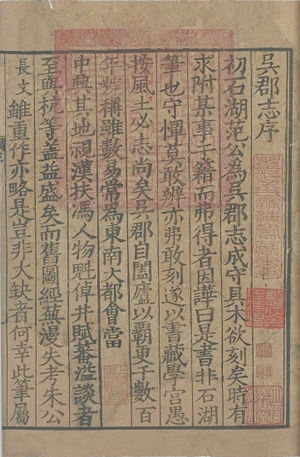 吳郡志序
初石湖范公為吳郡志成守具木欲刻矣時有
求附某事于籍而弗得者因譁曰是書非石湖
筆也守憚莫敢辨亦弗敢刻遂以書藏學宮愚
按風土必志尚矣吳郡自闔廬以霸更千數百
年號稱雖數易常為東南大都會當
中興其地視漢扶馮人物魁倬井賦蕃溢談者
至與杭等蓋益盛矣而舊圖經蕪漫失考朱公
長文雖重作亦略是豈非大缺者何幸此筆屬